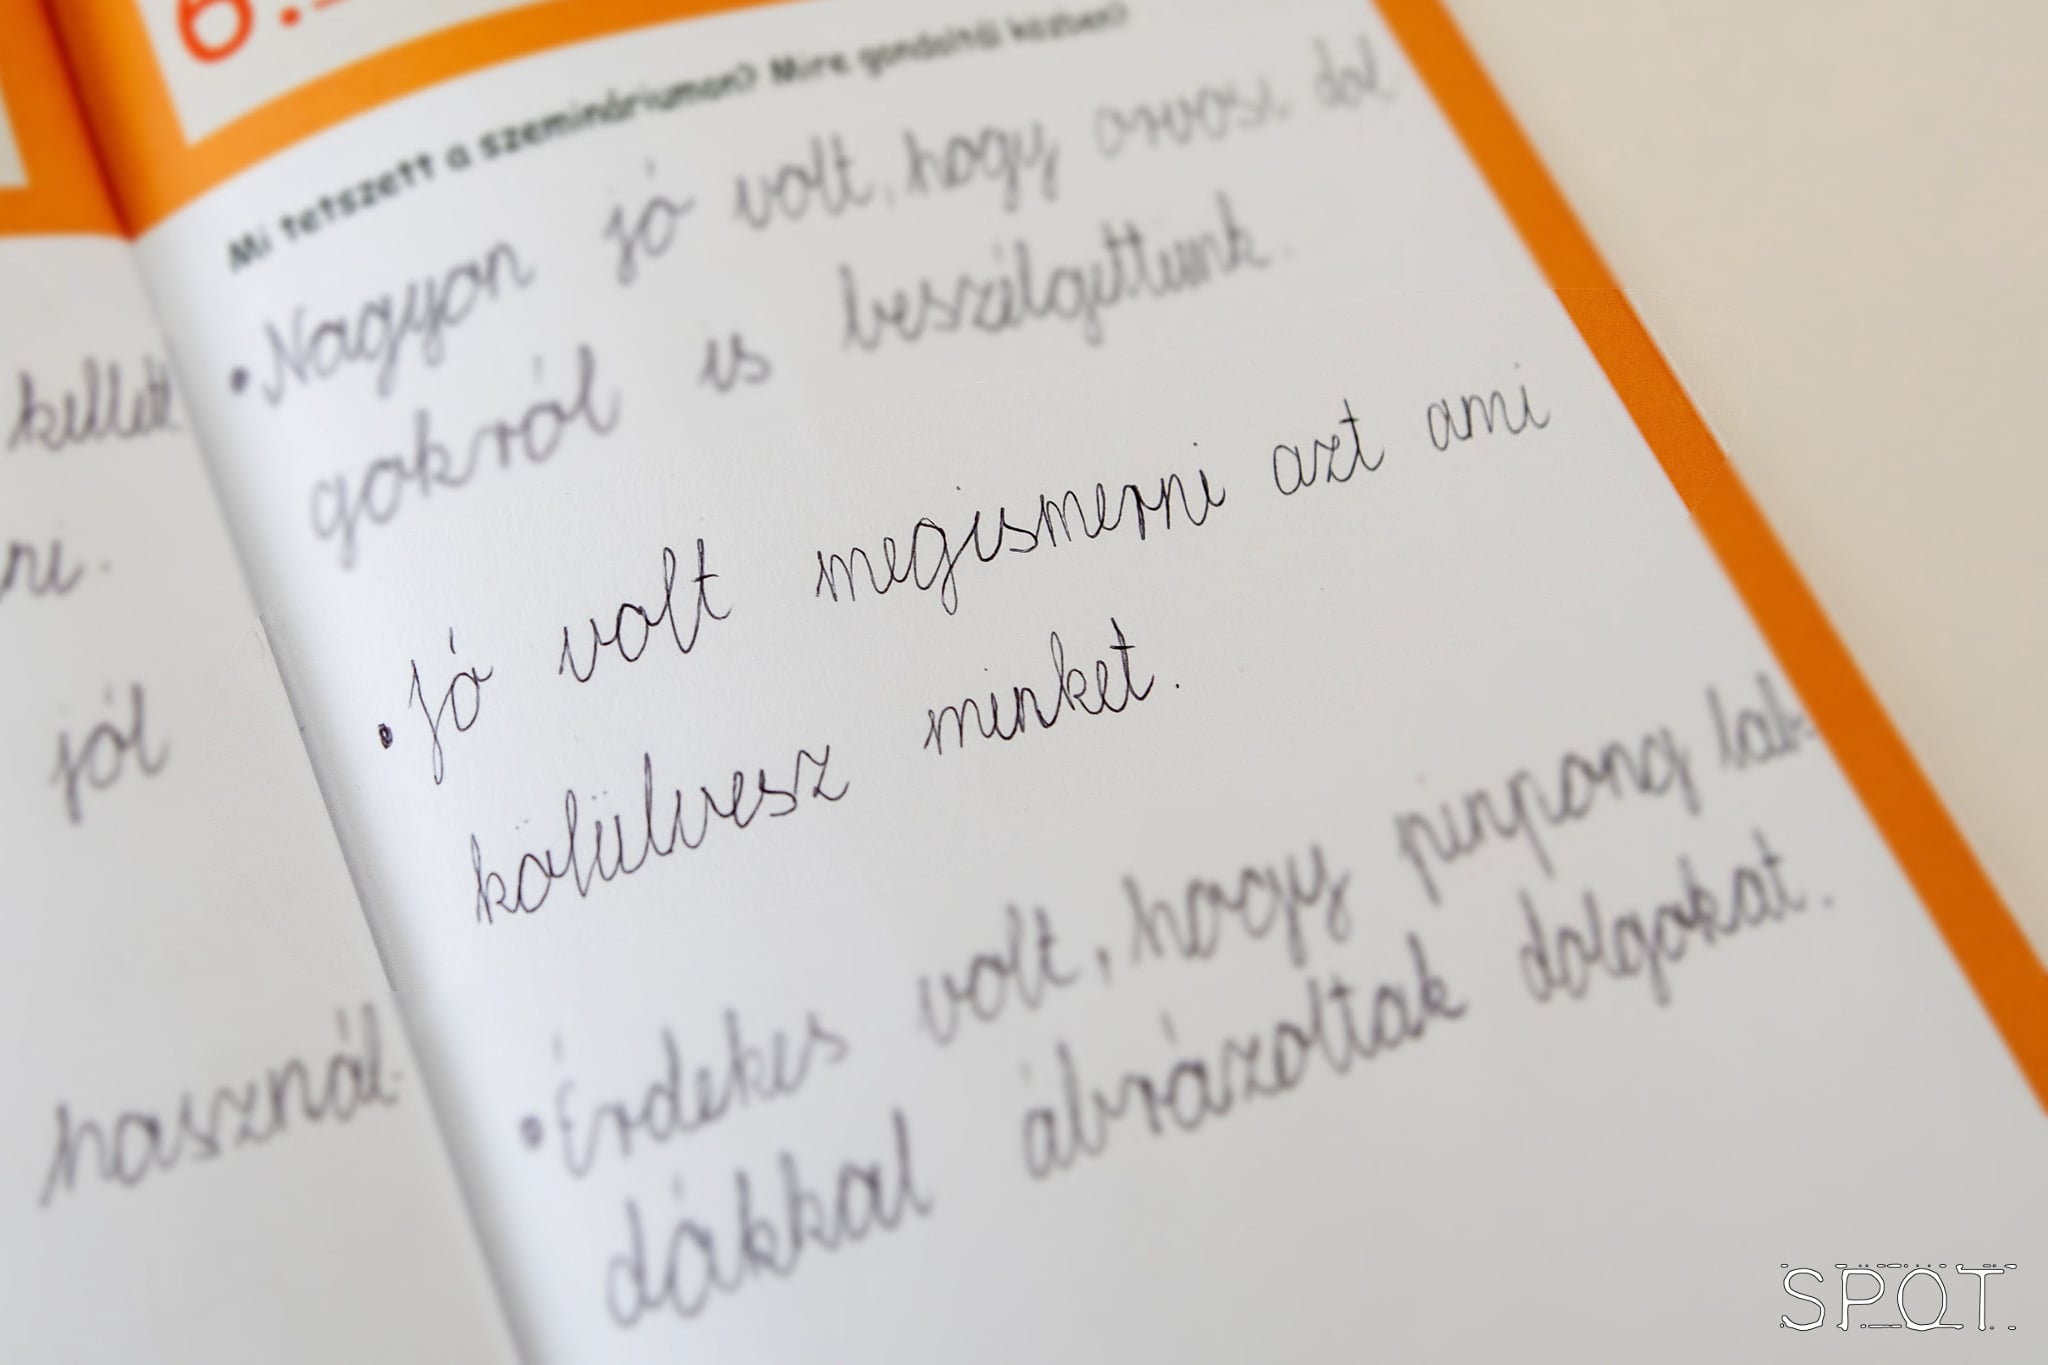 6.
Mi tetszett a szemináriumon? Mire gondoltál közben?
• Nagyon jó volt, hogy orvosi dol-
gokról is beszélgettünk.
• Jó volt megismerni azt ami
köfülvesz minket.
• Érdekes volt, hogy pinpong lab-
dákkal ábrázoltak dolgokat.
kellett
ni.
jól
használ-
SPOT